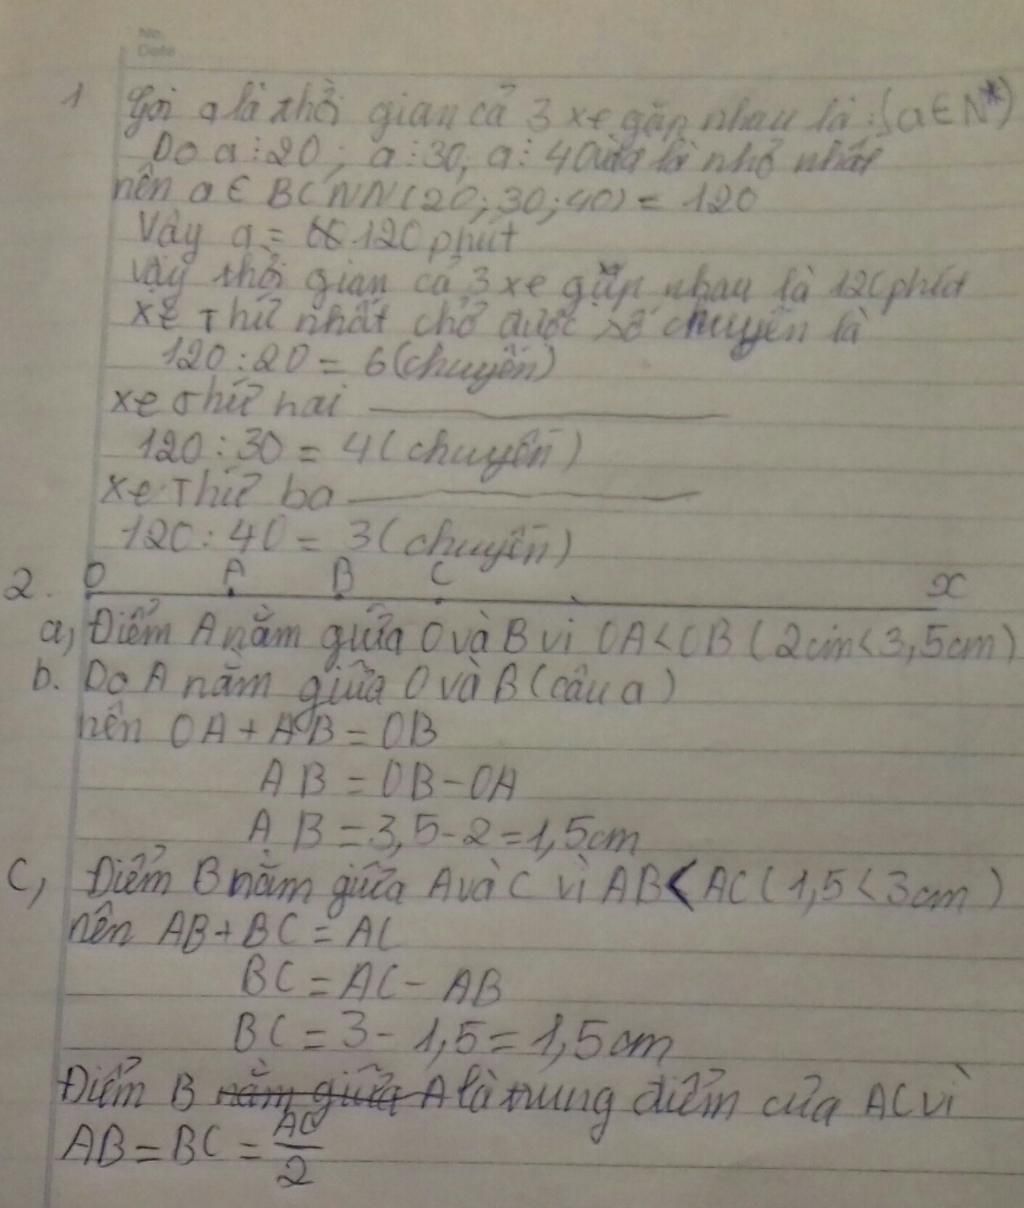 No.
Date
1 Gọi a là thời gian cả 3 xe gặp nhau là : (a ∈ N*)
Do a ⋮ 20 ; a ⋮ 30, a ⋮ 40 và a là nhỏ nhất
nên a ∈ BCNN(20; 30; 40) = 120
Vậy a = 120 phút
vậy thời gian cả 3 xe gặp nhau là 120 phút
xe Thứ nhất chở được số chuyến là
120 : 20 = 6 (chuyến)
xe thứ hai
120 : 30 = 4 (chuyến)
xe Thứ ba
120 : 40 = 3 (chuyến)
2. O A B C x
a, Điểm A nằm giữa O và B vì OA < OB (2cm < 3,5cm)
b. Do A nằm giữa O và B (câu a)
nên OA + AB = OB
AB = OB - OA
AB = 3,5 - 2 = 1,5cm
C, Điểm B nằm giữa A và C vì AB < AC (1,5 < 3cm)
nên AB + BC = AC
BC = AC - AB
BC = 3 - 1,5 = 1,5cm
Điểm B nằm giữa A là trung điểm của AC vì
AB = BC = AC/2